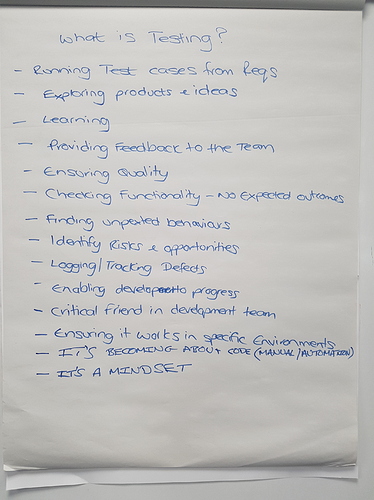 What is Testing?
- Running Test cases from Reqs
- Exploring products & ideas
- Learning
- Providing Feedback to the Team
- Ensuring Quality
- Checking Functionality - No Expected outcomes
- Finding unpexted behaviours
- Identify Risks & opportunities
- Logging/Tracking Defects
- Enabling to progress
- Critical friend in development team
- Ensuring it works in specific Environments
- IT'S BECOMING ABOUT CODE (MANUAL/AUTOMATION)
- IT'S A MINDSET